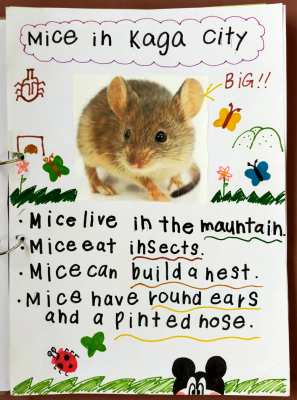 Mice in Kaga City
BiG!!
· Mice live in the mauntain.
· Mice eat insects.
· Mice can build a nest.
· Mice have round ears
and a pinted nose.